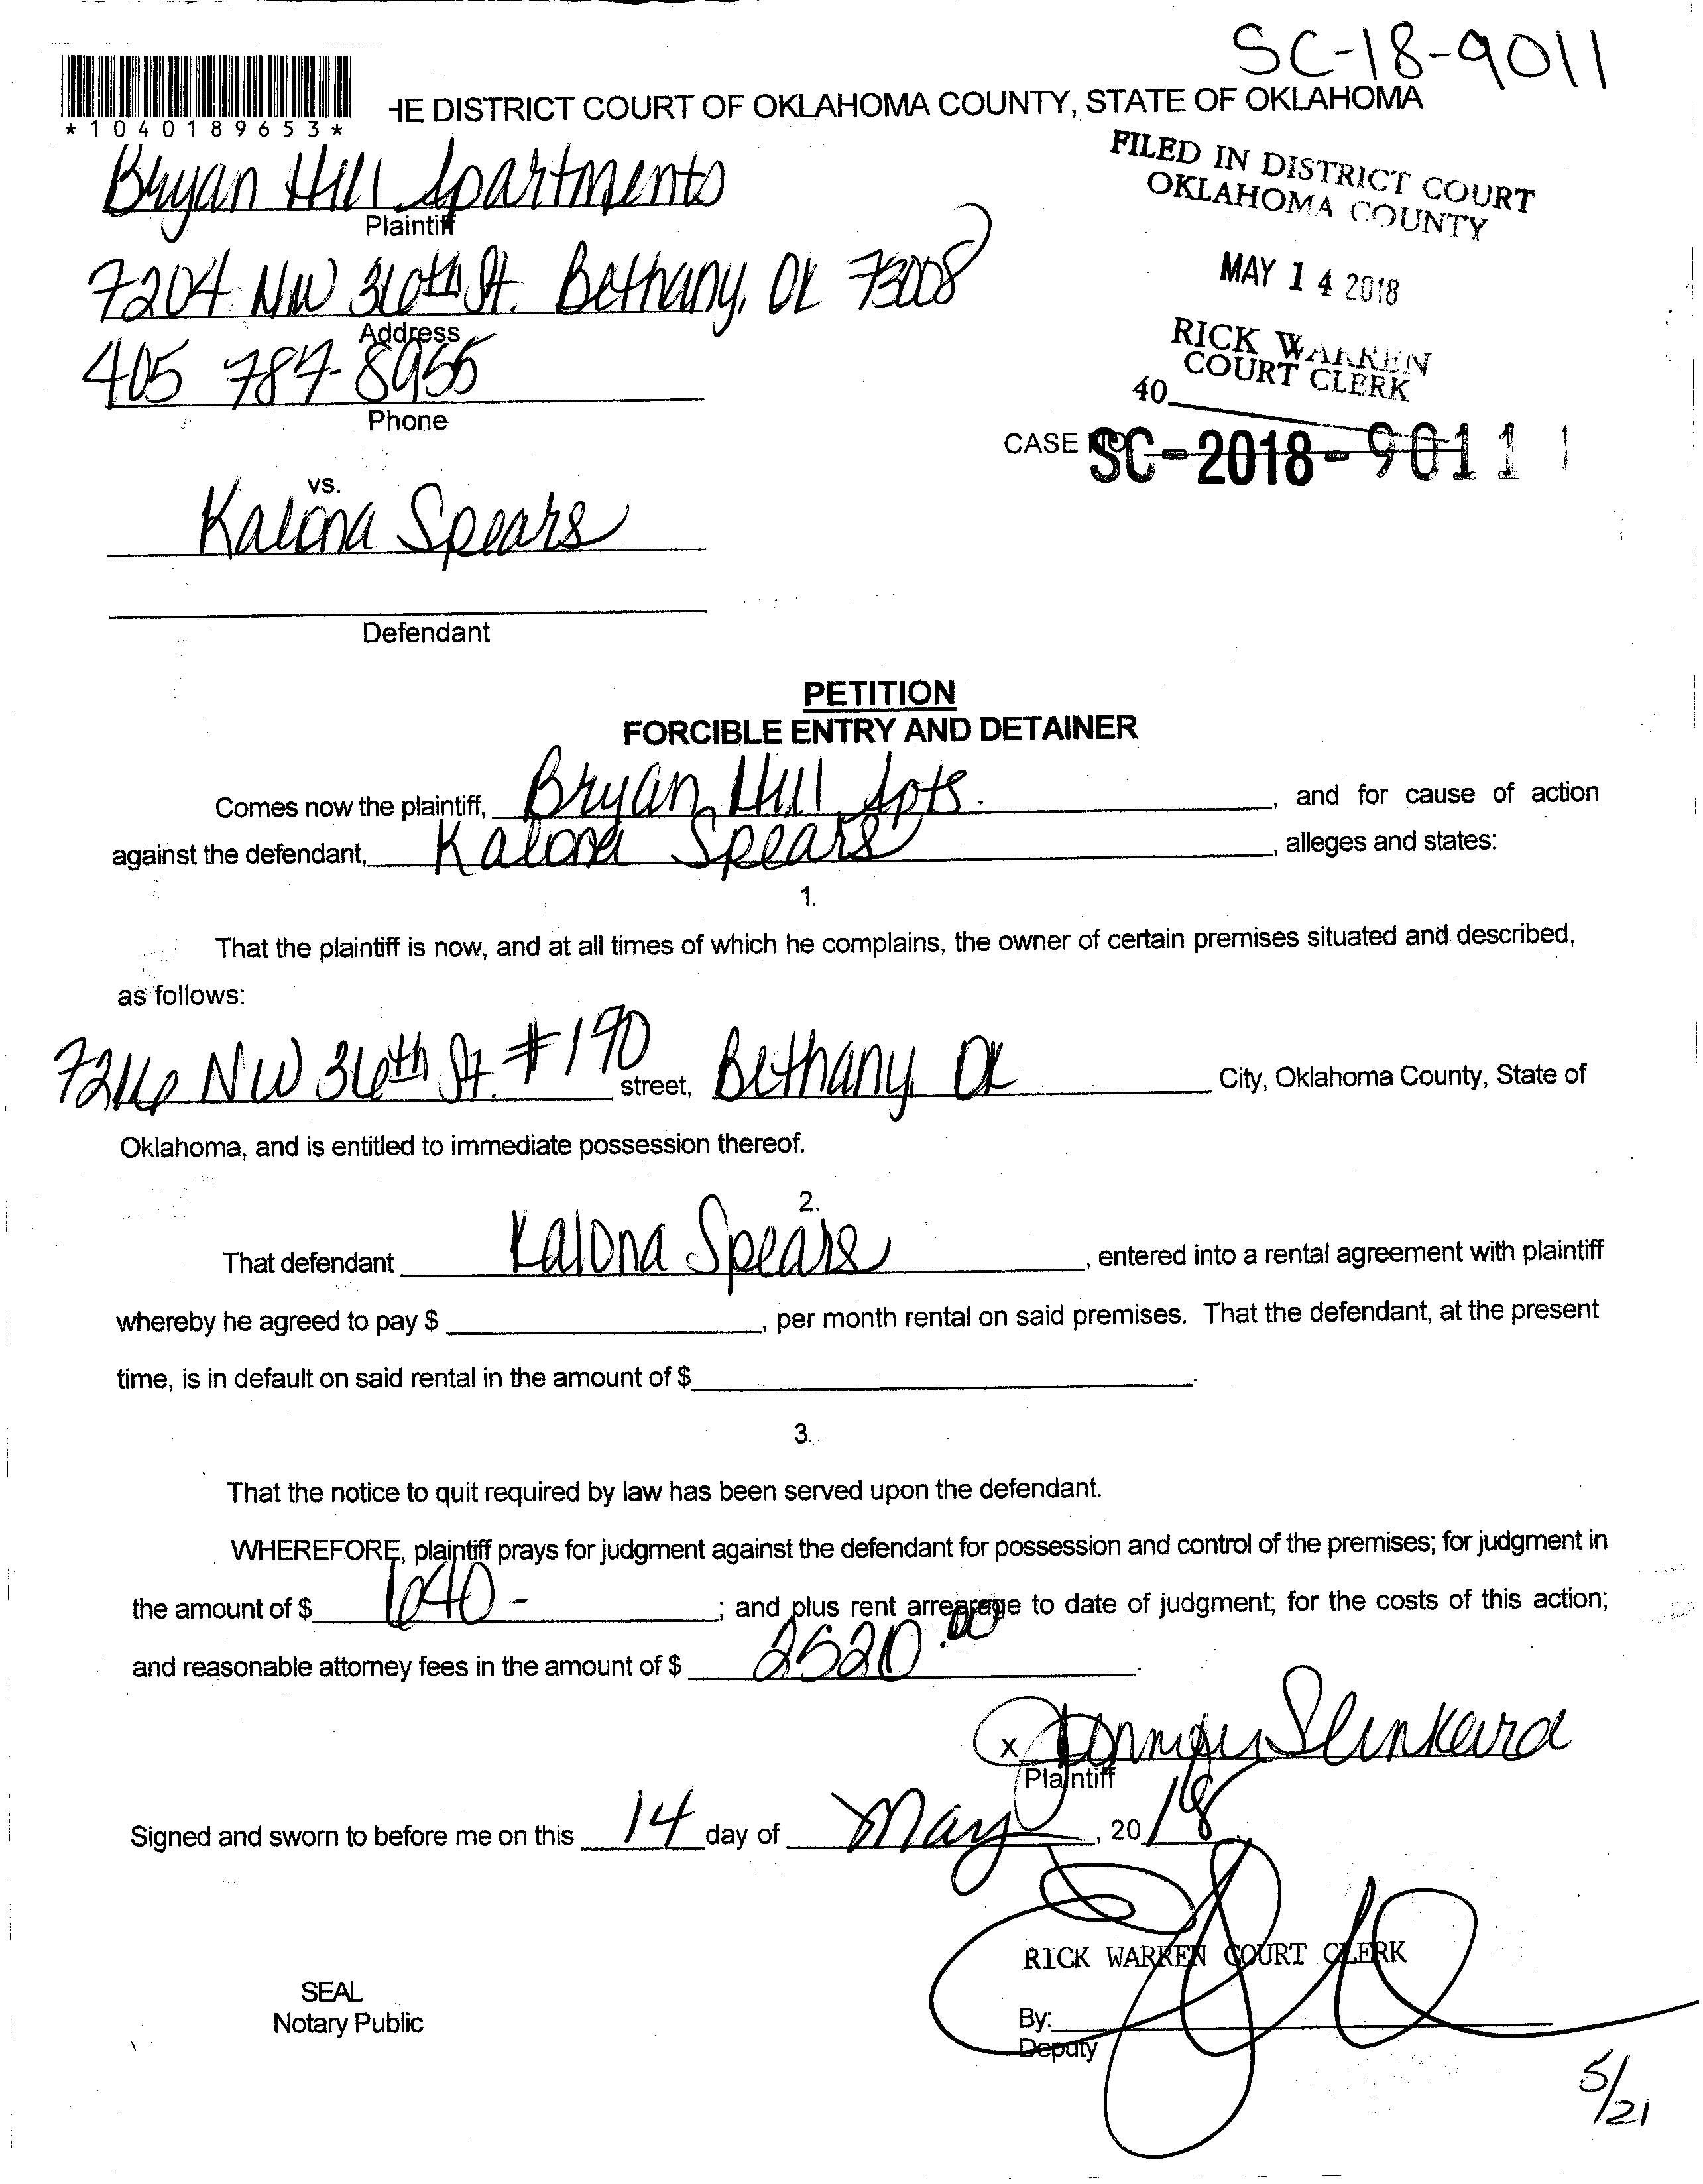 SC-18-9011
*1040189653*
HE DISTRICT COURT OF OKLAHOMA COUNTY, STATE OF OKLAHOMA
Bryan Hill Apartments
Plaintiff
FILED IN DISTRICT COURT
OKLAHOMA COUNTY
7204 NW 36th St. Bethany, OK 73008
Address
MAY 14 2018
405 787-8955
Phone
RICK WARREN
COURT CLERK
40
CASE NO SC-2018-9011
vs.
Kalona Spears
Defendant
PETITION
FORCIBLE ENTRY AND DETAINER
Comes now the plaintiff, Bryan Hill Apts. , and for cause of action
against the defendant, Kalona Spears , alleges and states:
1.
That the plaintiff is now, and at all times of which he complains, the owner of certain premises situated and described,
as follows:
7216 NW 36th St. #190 street, Bethany, OK City, Oklahoma County, State of
Oklahoma, and is entitled to immediate possession thereof.
2.
That defendant Kalona Spears , entered into a rental agreement with plaintiff
whereby he agreed to pay $ , per month rental on said premises. That the defendant, at the present
time, is in default on said rental in the amount of $ .
3.
That the notice to quit required by law has been served upon the defendant.
WHEREFORE, plaintiff prays for judgment against the defendant for possession and control of the premises; for judgment in
the amount of $ 640- ; and plus rent arrearage to date of judgment; for the costs of this action;
and reasonable attorney fees in the amount of $ 2520.00 .
x Jennifer Slinkard
Plaintiff
Signed and sworn to before me on this 14 day of May , 20 18
RICK WARREN COURT CLERK
SEAL
Notary Public
By:
Deputy
5/21